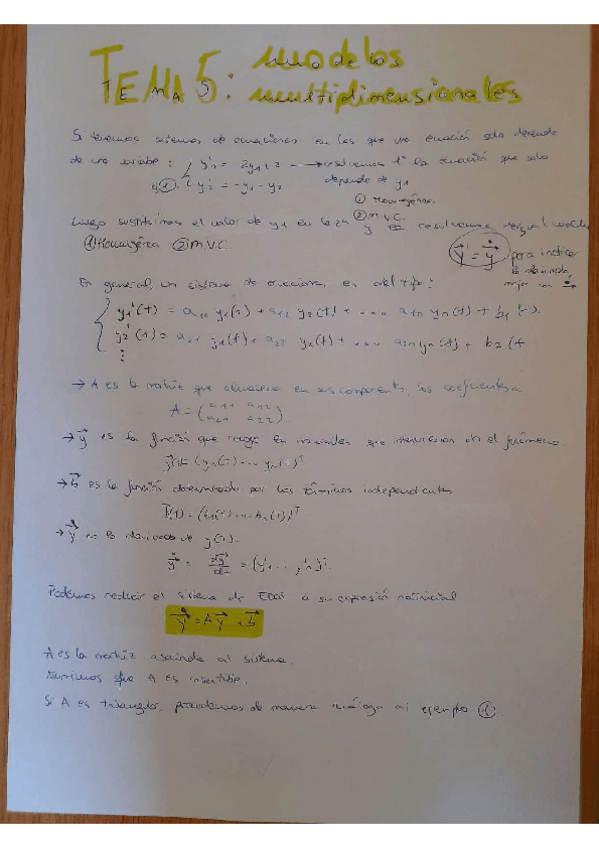 TEMA 5: modelos
multidimensionales
Si tenemos sistemas de ecuaciones en los que una ecuación solo depende
de una variable: y'1 = -2y1 + 2 → resolvemos 1º la ecuación que solo
ej ① y'2 = -y1 - y2 depende de y1
① Homogénea
② M.V.C.
Luego sustituimos el valor de y1 en la 2ª y resolvemos
① Homogénea ② M.V.C.
y' = ẏ para indicar
la derivada,
mejor con
En general, un sistema de ecuaciones es del tipo:
y1'(t) = a11 y1(t) + a12 y2(t) + ... a1n yn(t) + b1(t).
y2'(t) = a21 y1(t) + a22 y2(t) + ... a2n yn(t) + b2(t
→ A es la matriz que almacena en sus components, los coeficientes
A = (a11 a12
a21 a22)
→ y es la función que recoge las variables que intervienen en el fenómeno.
y(t) = (y1(t) ... yn(t))ᵀ
→ b es la función determinada por los términos independientes
b(t) = (b1(t) ... bn(t))ᵀ
→ ẏ es la derivada de y(t).
ẏ = dy/dt = (y'1 ..., y'n)ᵀ.
Podemos reducir el sistema de EDOs a su expresión matricial
ẏ = A y + b
A es la matriz asociada al sistema.
que A es invertible.
Si A es triangular, procedemos de manera análoga al ejemplo ①.